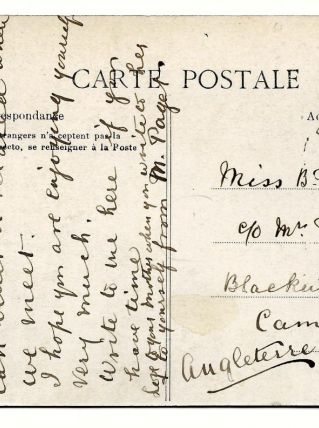 CARTE POSTALE
respondance
trangers n'a ceptent pas la
ecto, se renseigner à la Poste
we meet.
I hope you are enjoying yourself
very much.
Write to me here if you
have time
love to your mother when you write to her
& to yourself from M. Paget
Miss B
c/o Mr
Blackw
Cam
Angleterre